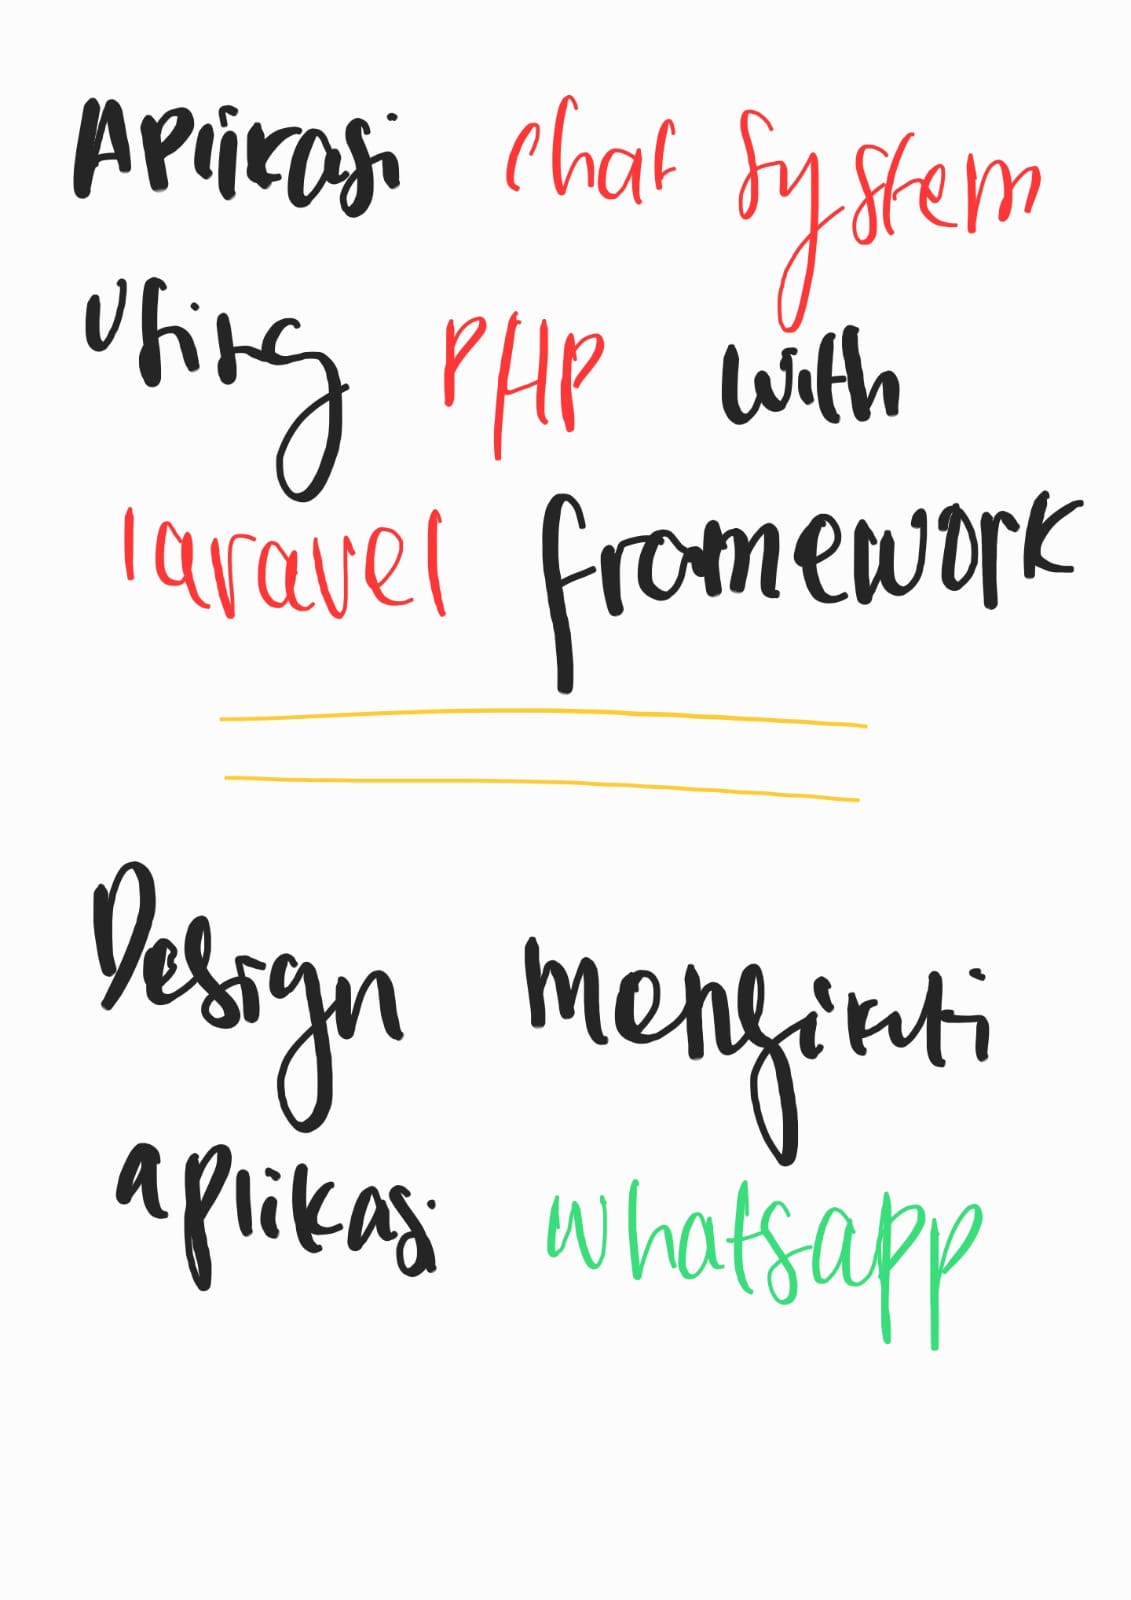 Aplikasi chat system
Using PHP with
laravel framework
Design mengikuti
aplikasi whatsapp